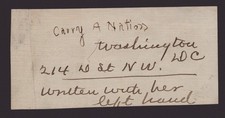 Carry A Nation
Washington
DC
214 D St N.W.
written with her
left hand